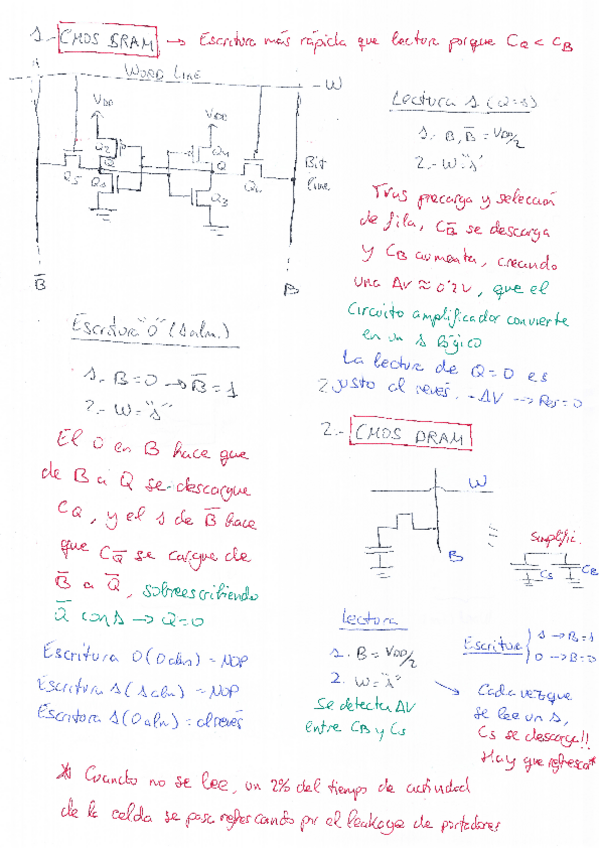 1.- CMOS SRAM → Escritura más rápida que lectura porque CQ < CB
WORD LINE
W
VDD
VDD
Q2
Q4
Q
Q̅
Q5
Q1
Q3
Q6
Bit
line
B̅
B
Lectura 1 (Q=1)
1.- B, B̅ = VDD/2
2.- W="1"
Tras precarga y selección
de fila, CB̅ se descarga
y CB aumenta, creando
una ΔV ≈ 0'2V, que el
circuito amplificador convierte
en un 1 lógico
La lectura de Q=0 es
justo al revés. -ΔV → Res=0
Escritura "0" (1 alm.)
1.- B=0 → B̅=1
2.- W="1"
El 0 en B hace que
de B a Q se descargue
CQ, y el 1 de B̅ hace
que CQ̅ se cargue de
B̅ a Q̅, sobreescribiendo
Q̅ con 1 → Q=0
Escritura 0 (0 alm) = NOP
Escritura 1 (1 alm) = NOP
Escritura 1 (0 alm) = al revés
2.- CMOS DRAM
W
B
Simplific.
CS
CB
Lectura
1. B = VDD/2
2. W="1"
Se detecta ΔV
entre CB y CS
Escritura
1 → B=1
0 → B=0
Cada vez que
se lee un 1,
CS se descarga!!
Hay que refrescar*
* Cuando no se lee, un 2% del tiempo de actividad
de la celda se pasa refrescando por el leakage de portadores